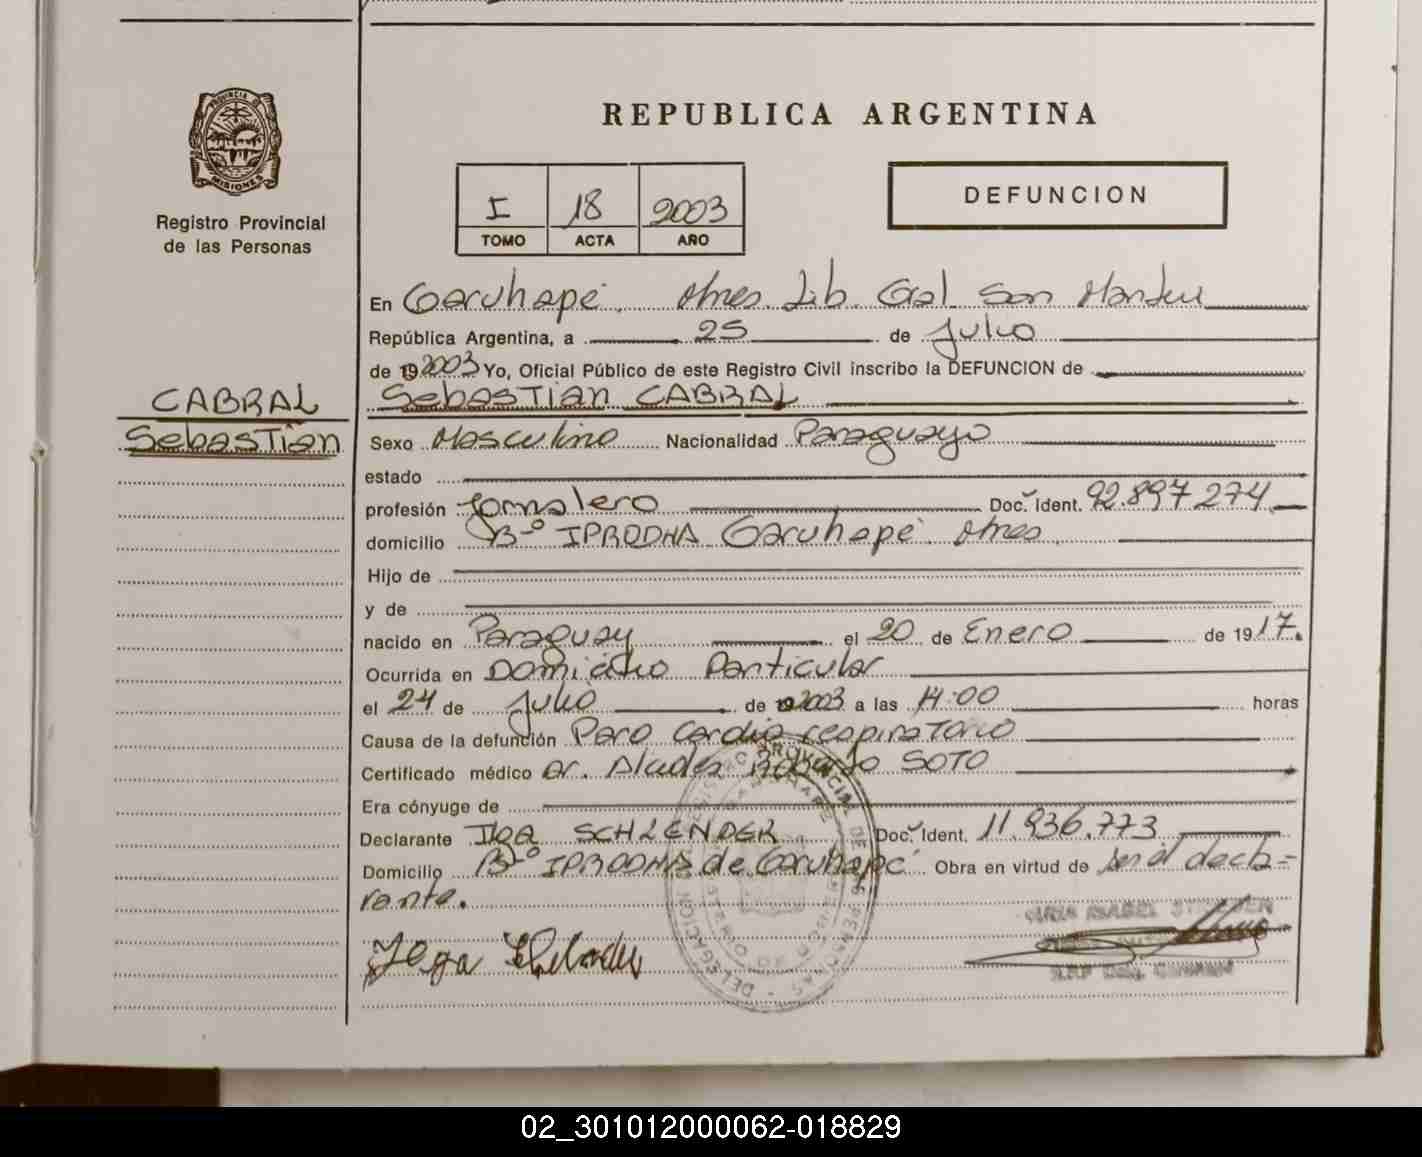 PROVINCIA DE
MISIONES
Registro Provincial
de las Personas
CABRAL
Sebastian
REPUBLICA ARGENTINA
I 18 2003
TOMO ACTA AÑO
DEFUNCION
En Garuhapé Mnes. Lib. Gral San Martín
República Argentina, a 25 de Julio
de 19 2003 Yo, Oficial Público de este Registro Civil inscribo la DEFUNCION de
Sebastian CABRAL
Sexo Masculino Nacionalidad Paraguayo
estado
profesión Jornalero Doc. Ident. 92.897.274
domicilio B-º IPRODHA Garuhapé Mnes.
Hijo de
y de
nacido en Paraguay el 20 de Enero de 1917.
Ocurrida en Domicilio Particular
el 24 de Julio de 19 2003 a las 14:00 horas
Causa de la defunción Paro Cardio respiratorio
Certificado médico Dr. Alcides Roberto SOTO
Era cónyuge de
Declarante Ilga SCHLENDER Doc. Ident. 11.936.773
Domicilio B-º IPRODHA de Garuhapé Obra en virtud de ser el decla-
rante.
Ilga
02_301012000062-018829